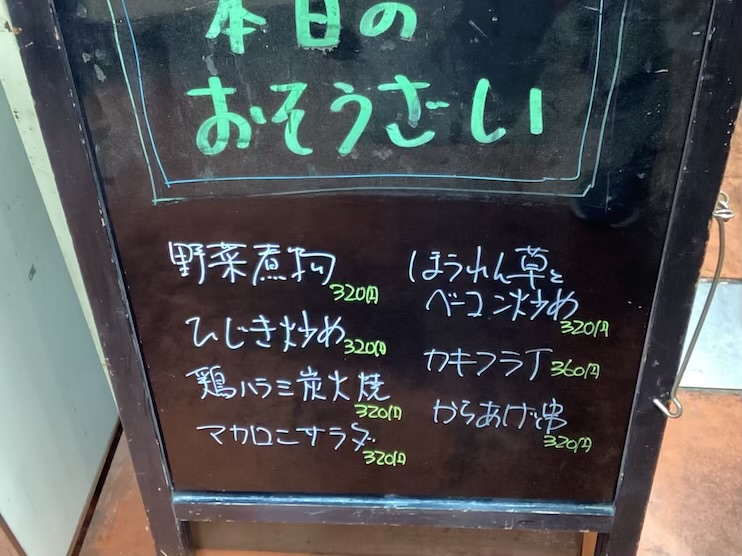 本日の
おそうざい
野菜煮物
320円
ひじき炒め
320円
鶏ハラミ炭火焼
320円
マカロニサラダ
320円
ほうれん草と
ベーコン炒め
320円
カキフライ 360円
からあげ串
320円